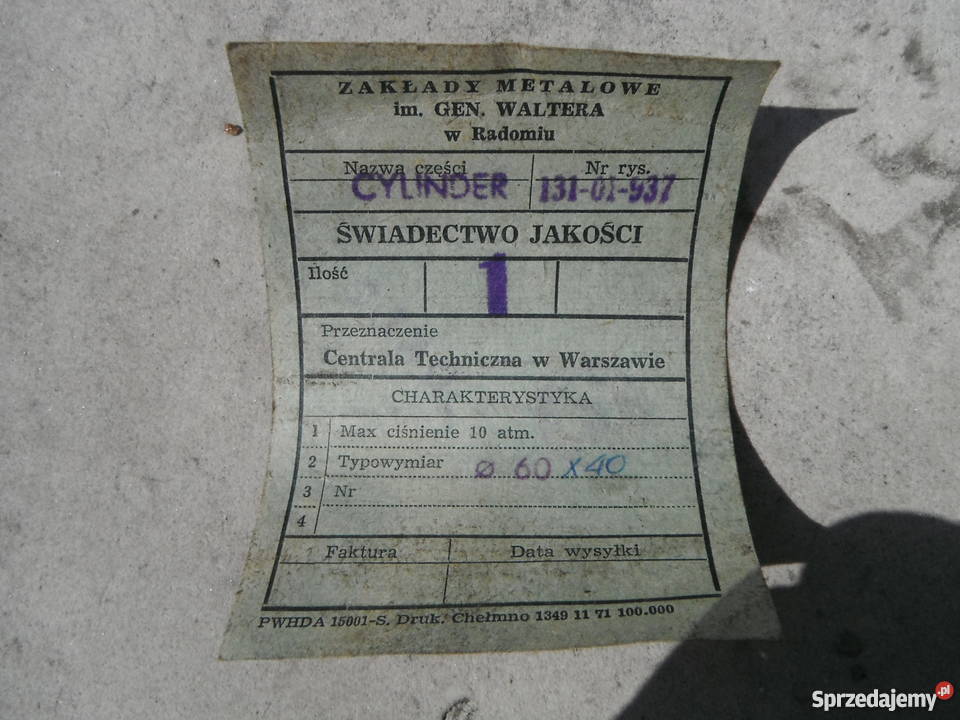 ZAKŁADY METALOWE
im. GEN. WALTERA
w Radomiu
Nazwa części Nr rys.
CYLINDER 131-01-937
ŚWIADECTWO JAKOŚCI
Ilość 1
Przeznaczenie
Centrala Techniczna w Warszawie
CHARAKTERYSTYKA
1 Max ciśnienie 10 atm.
2 Typowymiar ø 60 x 40
3 Nr
4
Faktura Data wysyłki
PWHDA 15001-S. Druk. Chełmno 1349 11 71 100.000
Sprzedajemy.pl